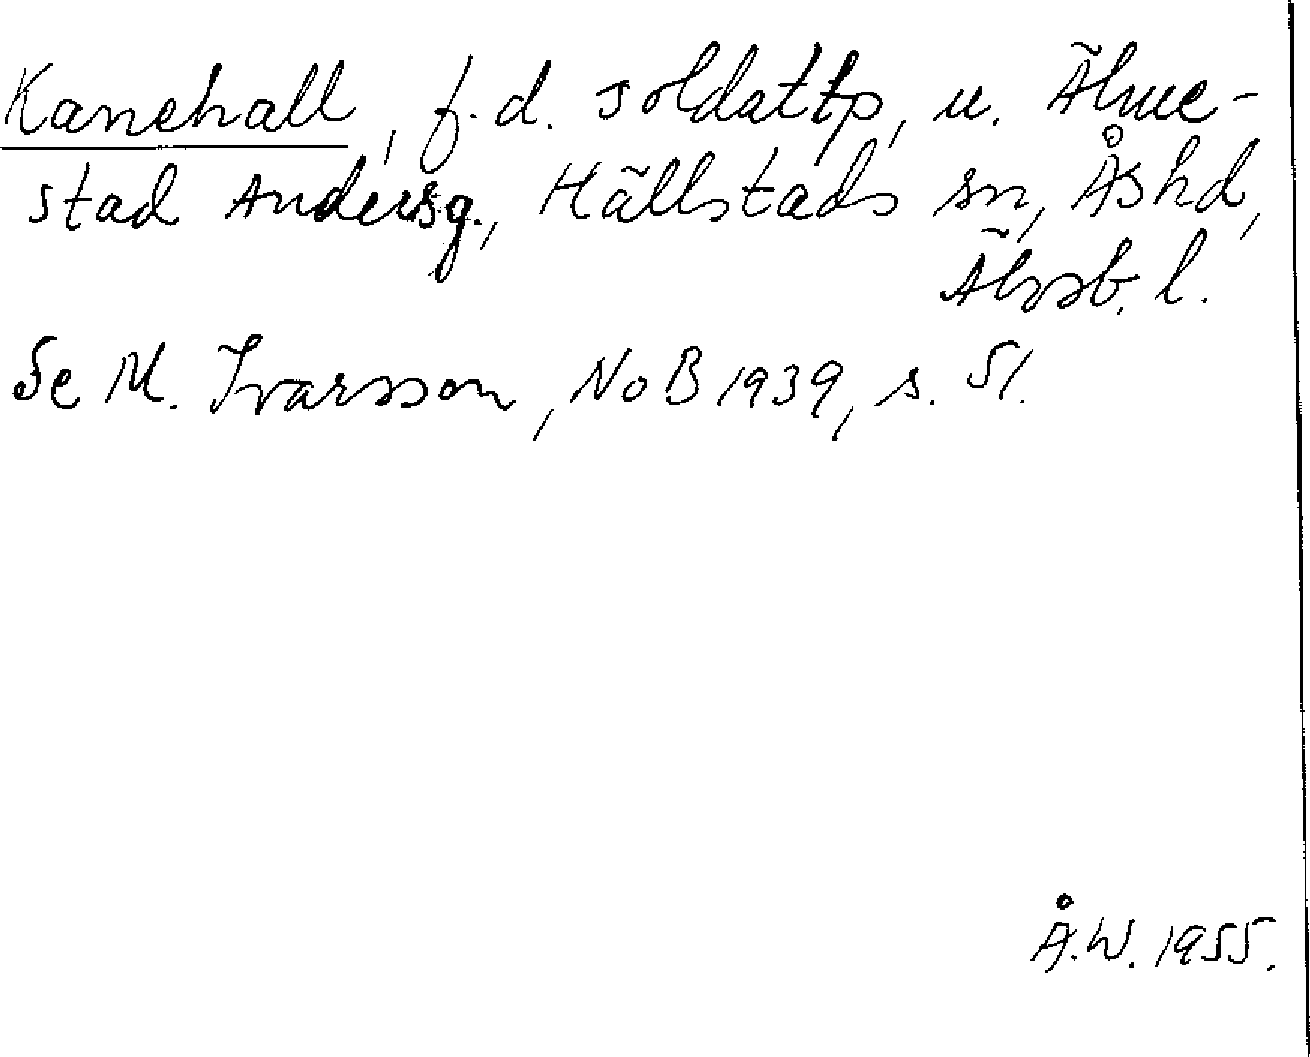 Kanehall, f.d. soldattp, u. Älme-
stad Andersg., Hällstads sn, Ås hd,
Älvsb. l.
Se M. Ivarsson, NoB 1939, s. 51.
Å.W. 1955.